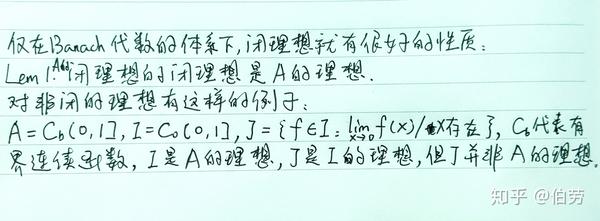 仅在Banach代数的体系下,闭理想就有很好的性质:
Lem 1: A的闭理想的闭理想是A的理想.
对非闭的理想有这样的例子:
A=C_b(0,1], I=C_0(0,1], J={f∈I: lim_{x→0} f(x)/x存在}, C_b代表有
界连续函数, I是A的理想, J是I的理想, 但J并非A的理想.
知乎 @伯劳